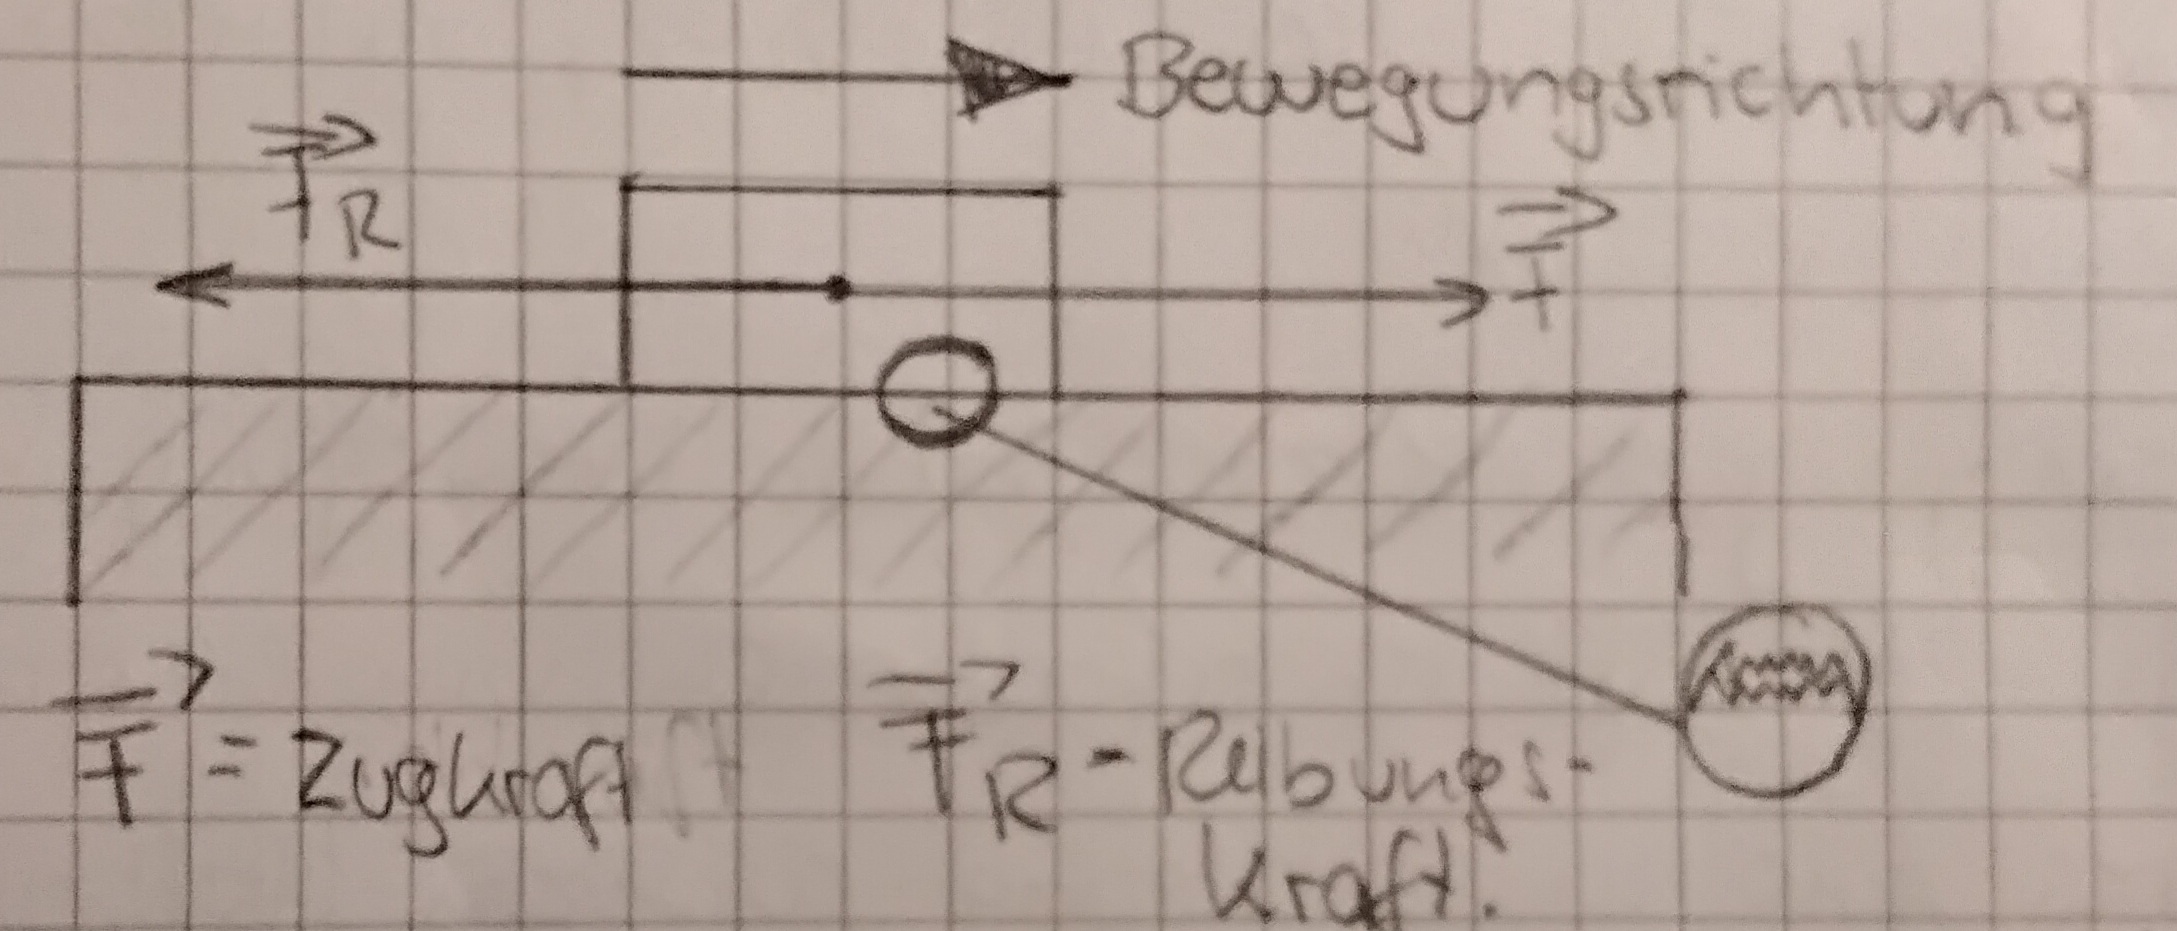 Bewegungsrichtung
F⃗R
F⃗
F⃗ = Zugkraft F⃗R - Reibungs-
kraft.